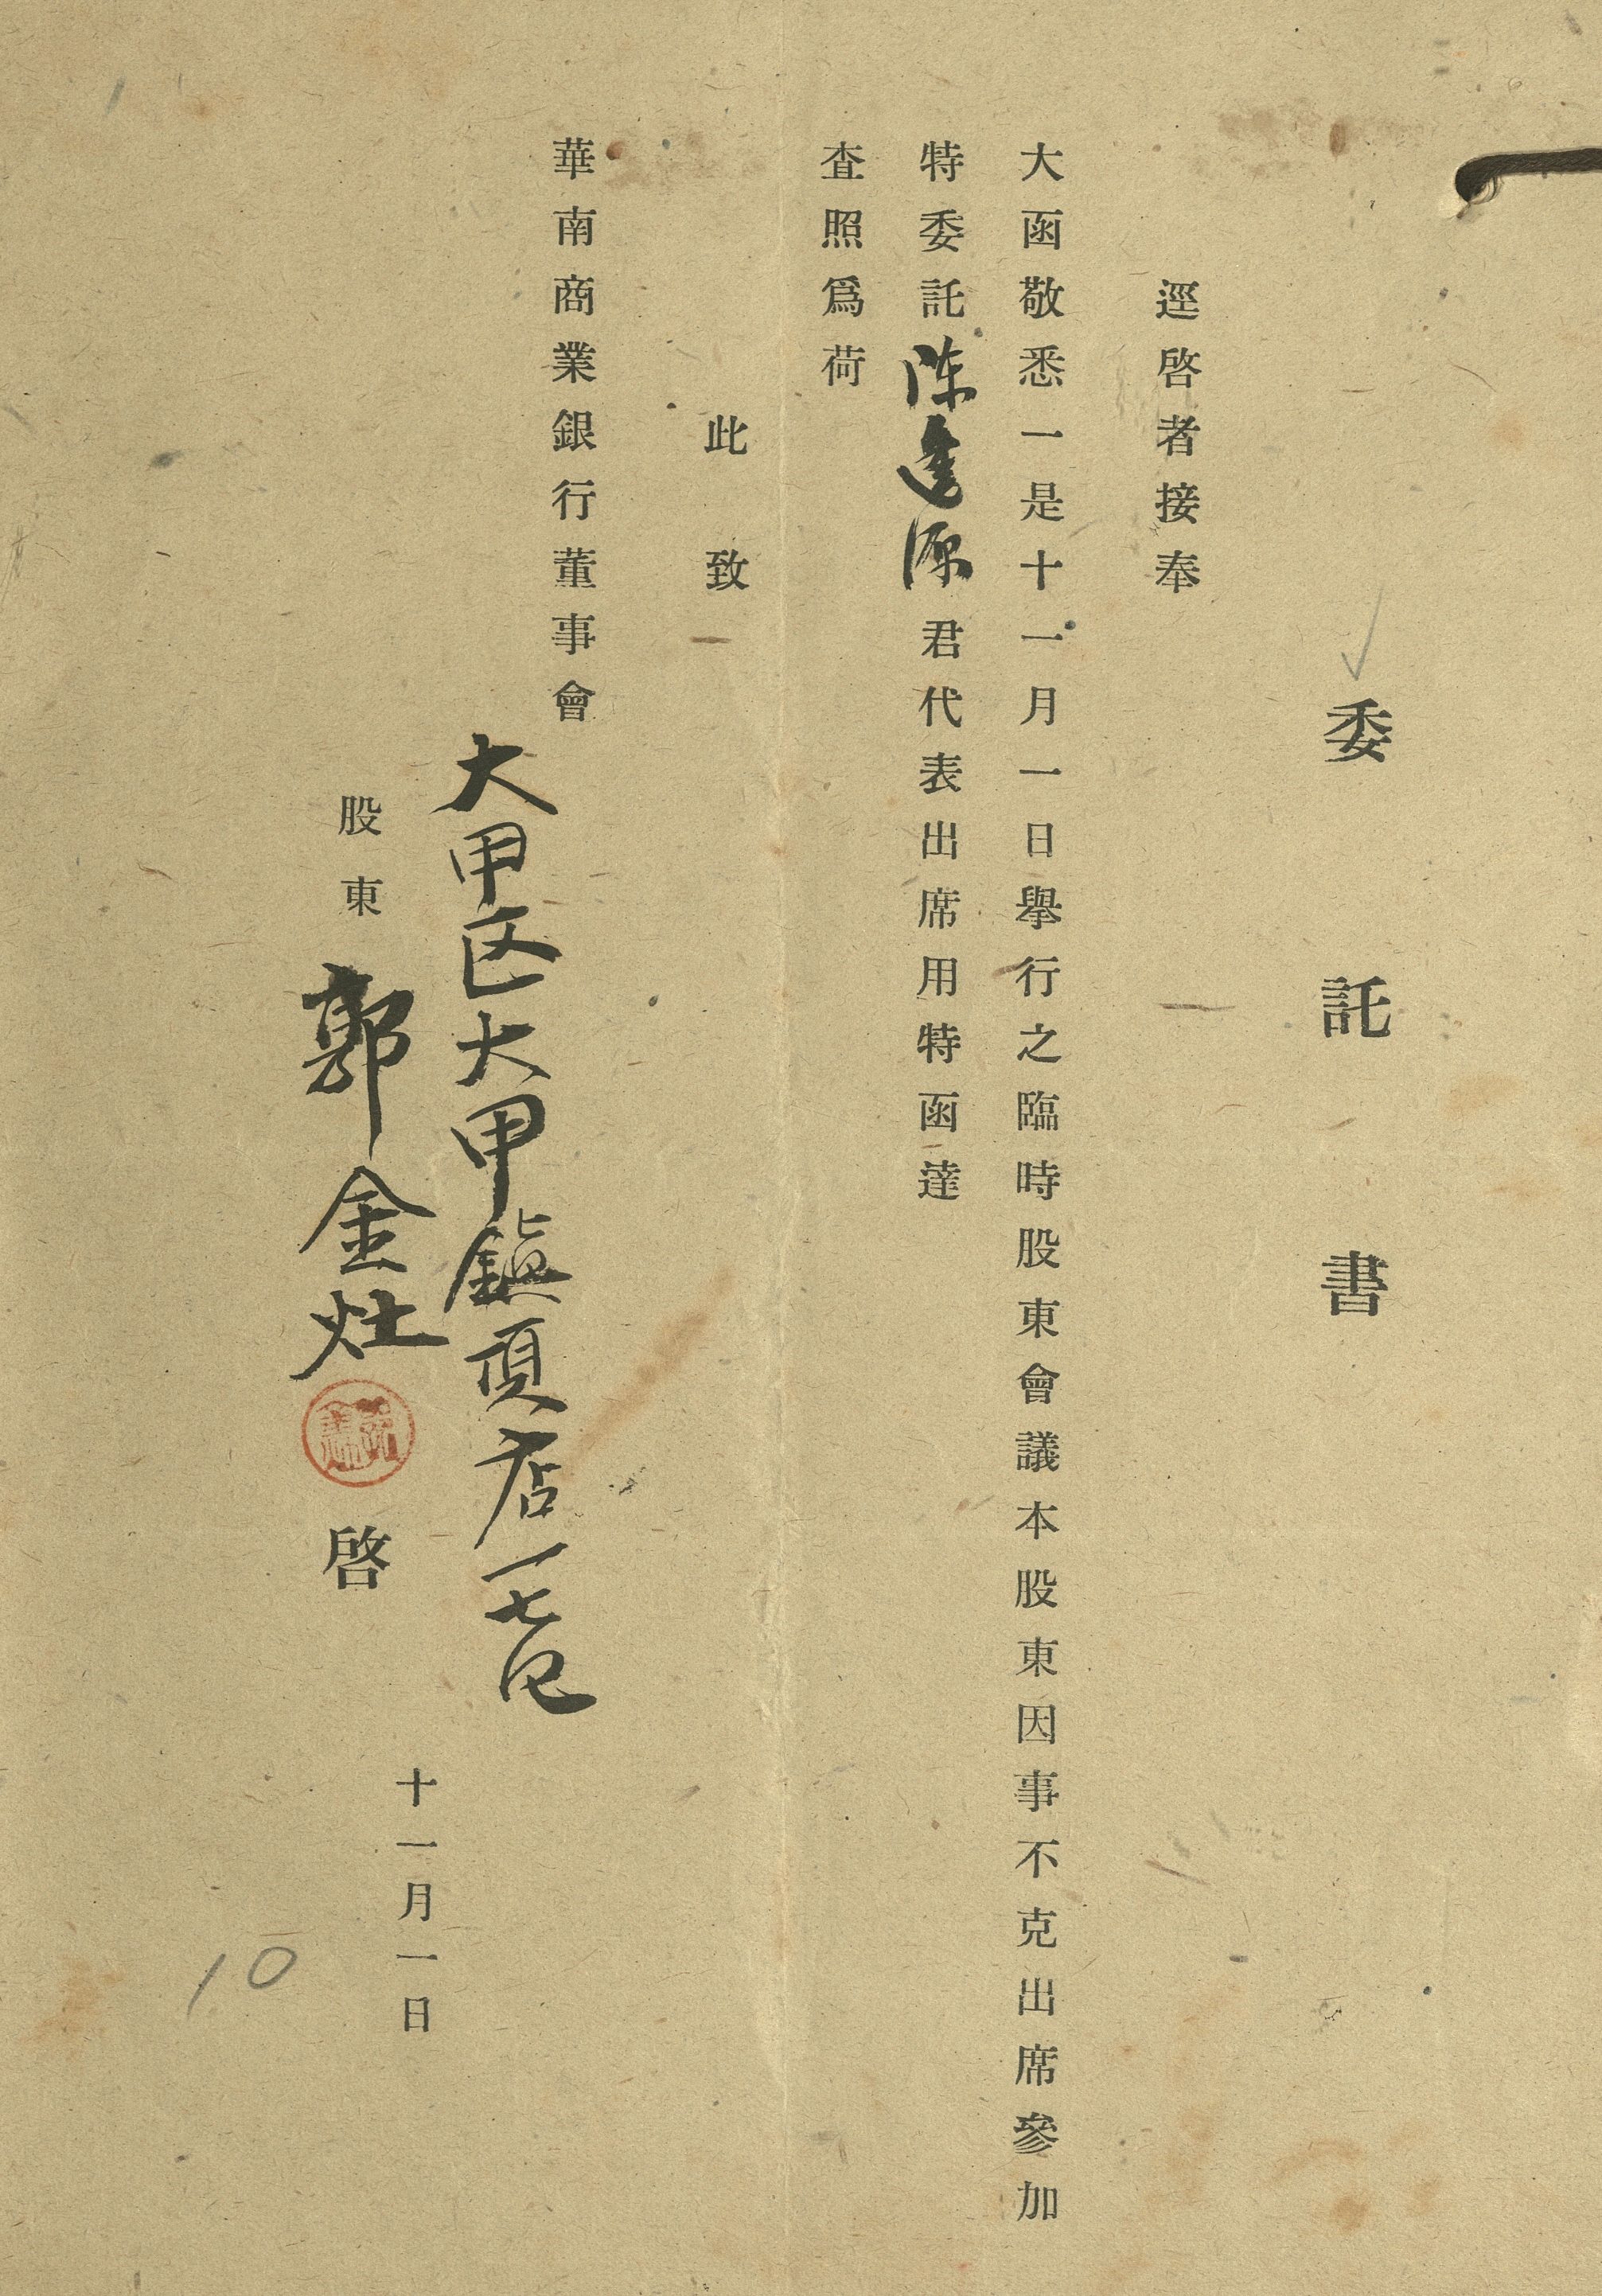 委託書
逕啓者接奉
大函敬悉一是十一月一日舉行之臨時股東會議本股東因事不克出席參加
特委託陈逢源君代表出席用特函達
查照爲荷
此致
華南商業銀行董事會
大甲区大甲鎮頂店一七〇
股東郭金灶啓
十一月一日
10